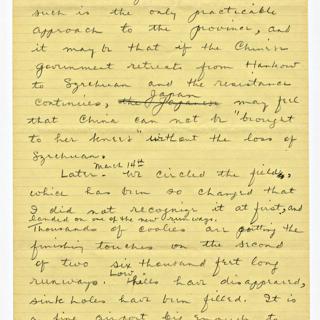 such is the only practicable
approach to the province, and
it may be that if the Chinese
government retreats from Hankow
to Szechuan and the resistance
Japan
continues, the Japanese may feel
that China can not be "brought
to her knees" without the loss of
Szechuan.
March 14th
Later - We circled the field,
which has been so changed that
I did not recognize it at first, and
landed on one of the new runways.
Thousands of coolies are putting the
finishing touches on the second
of two six thousand feet long
runways. Low hills have disappeared,
sink holes have been filled. It is
a fine airport big enough to